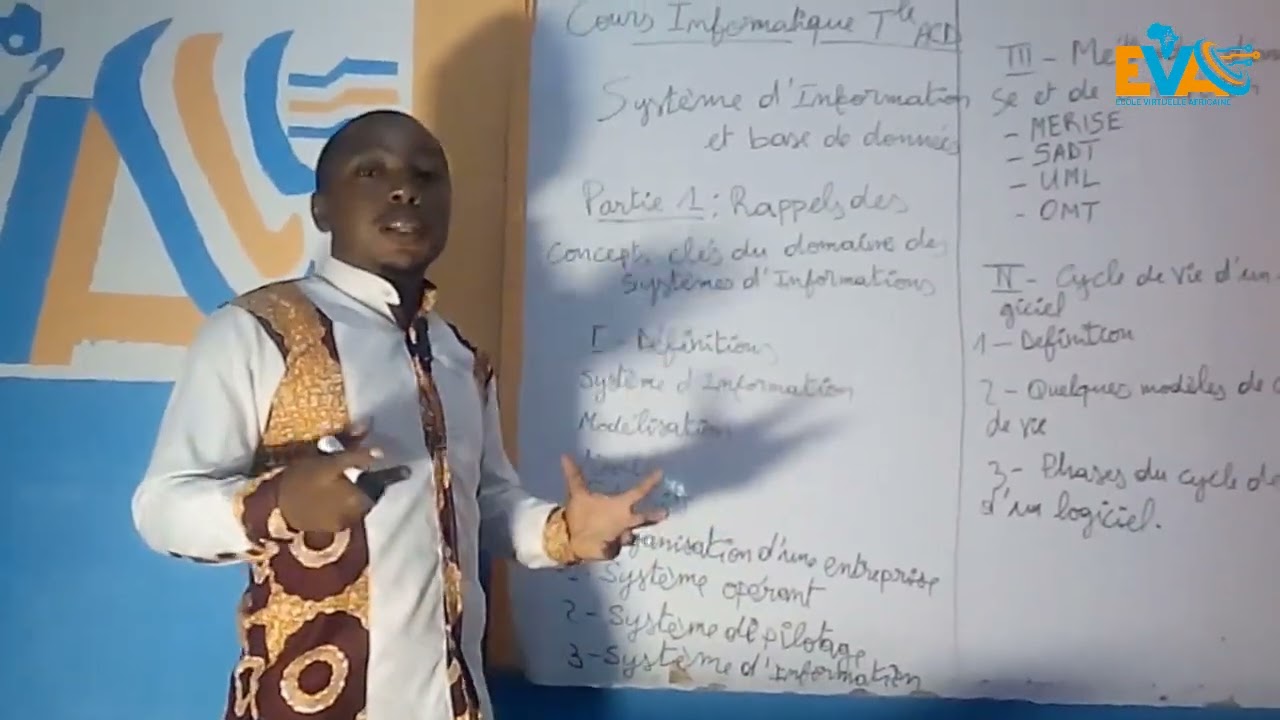 Cours Informatique Tle ACD
Système d'Information
et base de données
Partie 1 : Rappels des
Concepts clés du domaine des
Systèmes d'Informations
I - Définitions
Système d'Information
Modélisation
ganisation d'une entreprise
Système opérant
2 - Système de pilotage
3 - Système d'Information
III -
se et de
- MERISE
- SADT
- UML
- OMT
IV - Cycle de vie d'un
giciel
1 - Definition
2 - Quelques modèles de
de vie
3 - Phases du cycle de
d'un logiciel.
EVA
ECOLE VIRTUELLE AFRICAINE